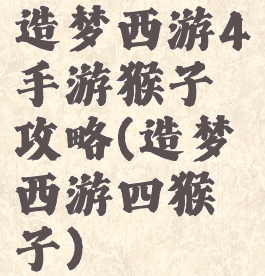 造梦西游4
手游猴子
攻略(造梦
西游四猴
子)